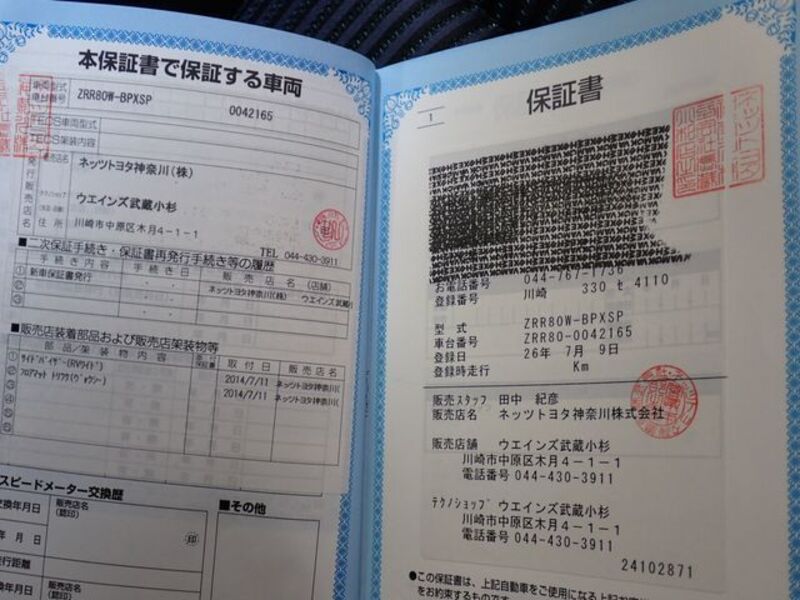 本保証書で保証する車両
車両型式
車台番号
ZRR80W-BPXSP
0042165
TECS車両型式
TECS架装内容
発行販売店名
販売店名
ネッツトヨタ神奈川(株)
テクノショップ
ウエインズ武蔵小杉
住所
川崎市中原区木月4-1-1
TEL 044-430-3911
■二次保証手続き・保証書再発行手続き等の履歴
手続き内容 手続き日 販売店名(店舗)
① 新車保証書発行 ネッツトヨタ神奈川(株) ウエインズ武蔵小
②
③
■販売店装着部品および販売店架装物等
部品/架装物内容 保証書 取付日 販売店名
① サイドバイザー(RVワイド) 2014/7/11 ネッツトヨタ神奈川(
② フロアマット 2014/7/11 ネッツトヨタ神奈川(
③
④
⑤
スピードメーター交換歴
交換年月日
販売店名
(認印)
年 月 日
印
走行距離
交換年月日
販売店名
(認印)
■その他
保証書
1
お電話番号 044-767-1736
登録番号 川崎 330 セ 4110
型式 ZRR80W-BPXSP
車台番号 ZRR80-0042165
登録日 26年 7月 9日
登録時走行 Km
販売スタッフ 田中 紀彦
販売店名 ネッツトヨタ神奈川株式会社
販売店舗 ウエインズ武蔵小杉
川崎市中原区木月4-1-1
電話番号 044-430-3911
テクノショップ ウエインズ武蔵小杉
川崎市中原区木月4-1-1
電話番号 044-430-3911
24102871
●この保証書は、上記自動車をご使用になる上記お
をお約束するものです。